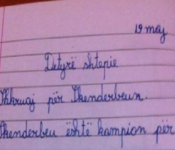 19 maj
Detyrë shtëpie
Shkruaj për Skenderbeun.
Skenderbeu është kampion për